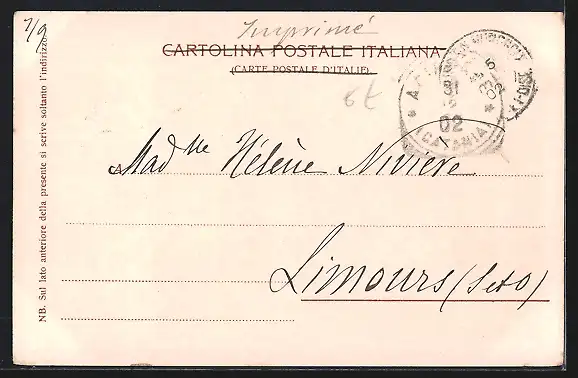 7/9
Imprimé
CARTOLINA POSTALE ITALIANA
(CARTE POSTALE D'ITALIE)
6t
02
(CATANIA)
Mad lle Hélène Nivière
Limours (S et O)
NB. Sul lato anteriore della presente si scrive soltanto l'indirizzo.